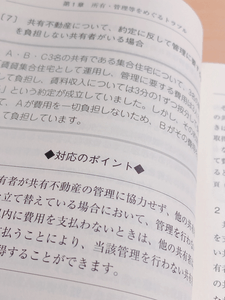 第1章 所有・管理等をめぐるトラブル
(7) 共有不動産について、約定に反して管理費
を負担しない共有者がいる場合
A・B・C3名の共有である集合住宅について
賃貸集合住宅として運用し、管理に要する費用
し負担し、賃料収入については3分の1ずつ
」という約定が成立していました。しかし、その
て、Aが費用を一切負担しないため、Bがその
負担しています。
◆対応のポイント
有者が共有不動産の管理に協力せず、他の共有
立て替えている場合において、管理を行わ
内に費用を支払わないときは、他の共有
払うことにより、当該管理を行わない共有
得することができます。
2